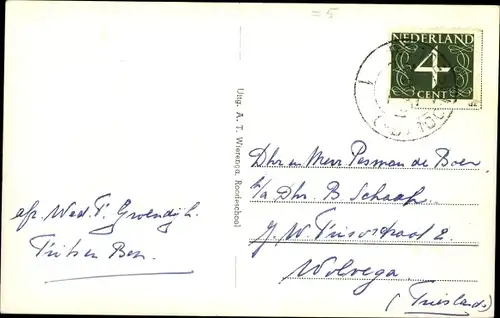 = 5
NEDERLAND
4
CENT
Uitg. A. T. Wierenga, Roodeschool
afz. Wed. T. Groendijk.
Frits en Ben.
Dhr en Mevr Pesman de Boer
p/a Dhr. B Schaap
J. W. Frisostraat 2.
Wolvega
(Friesland)